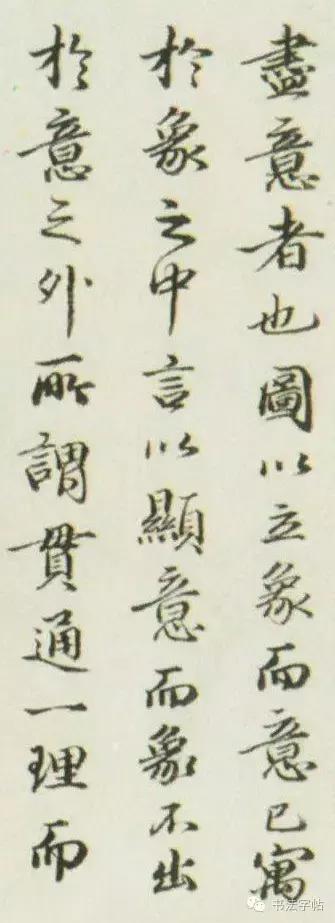 盡意者也圖以立象而意已寓
於象之中言以顯意而象不出
於意之外所謂貫通一理而
书法字帖